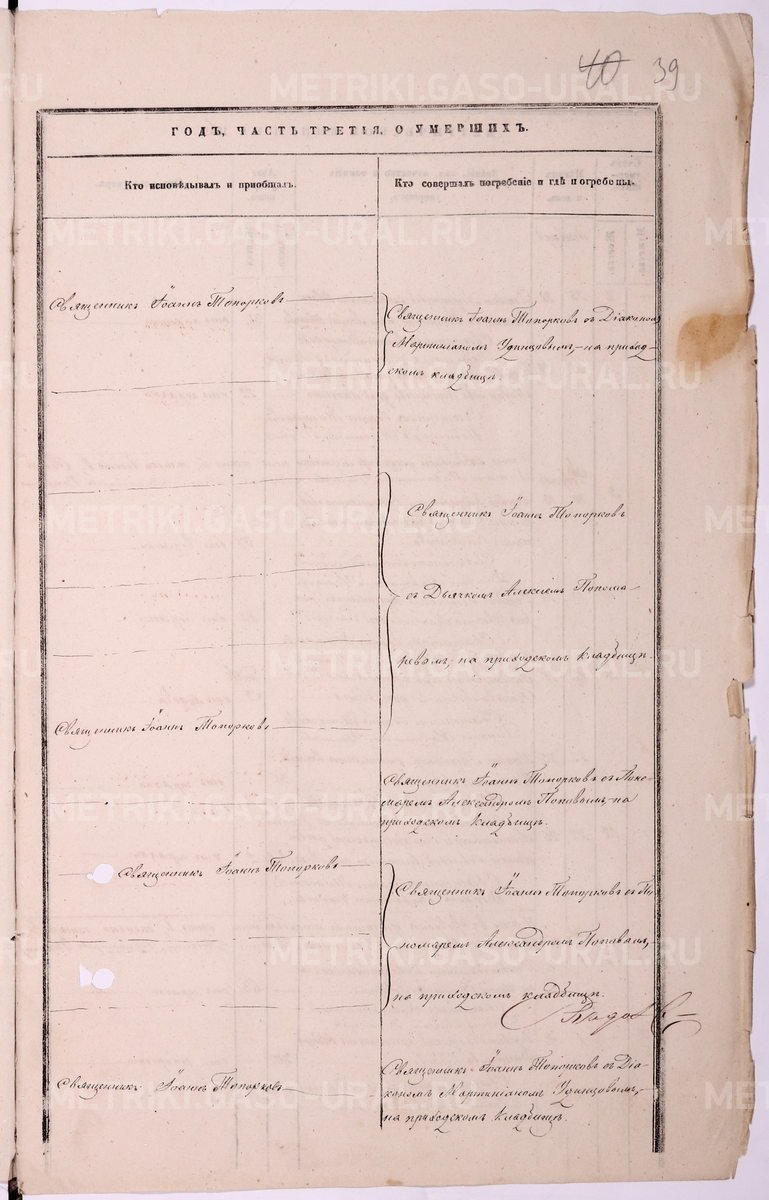 40 39
ГОДЪ, ЧАСТЬ ТРЕТІЯ, О УМЕРШИХЪ.
Кто исповѣдывалъ и приобщалъ.
Кто совершалъ погребеніе и гдѣ погребены.
Священникъ Іоаннъ Топорковъ
Священникъ Іоаннъ Топорковъ съ Діакономъ
Мартиніаномъ Удинцовымъ, на приход-
скомъ кладбищѣ.
Священникъ Іоаннъ Топорковъ
съ Дьячкомъ Алексіемъ Понома-
ревымъ, на приходскомъ кладбищѣ.
Священникъ Іоаннъ Топорковъ
Священникъ Іоаннъ Топорковъ съ Поно-
маремъ Александромъ Поповымъ, на
приходскомъ кладбищѣ.
Священникъ Іоаннъ Топорковъ
Священникъ Іоаннъ Топорковъ съ По-
номаремъ Александромъ Поповымъ,
на приходскомъ кладбищѣ.
Священникъ Іоаннъ Топорковъ
Священникъ Іоаннъ Топорковъ съ Діа-
кономъ Мартиніаномъ Удинцовымъ,
на приходскомъ кладбищѣ.
METRIKI.GASO-URAL.RU